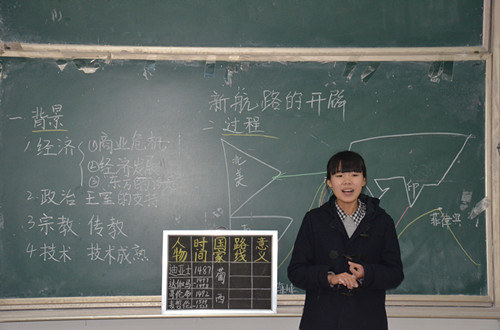 新航路的开辟
一 背景
1 经济 ①商业危机
②经济发展
③东方的
2 政治 王室的支持
3 宗教 传教
4 技术 技术成熟
二 过程
北美
印
菲律宾
人物 时间 国家 路线 意义
迪亚士 1487 葡
达伽马 1497
哥伦布 1492 西
麦哲伦 1519